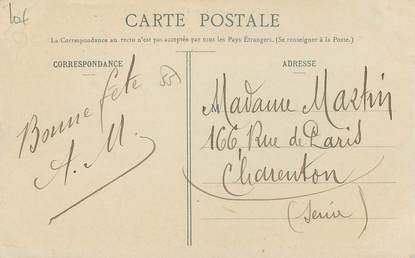 CARTE POSTALE
La Correspondance au recto n'est pas acceptée par tous les Pays Étrangers. (Se renseigner à la Poste.)
CORRESPONDANCE
Bonne fête
A. M.
55
ADRESSE
Madame Martin
166, Rue de Paris
Charenton
(Seine)